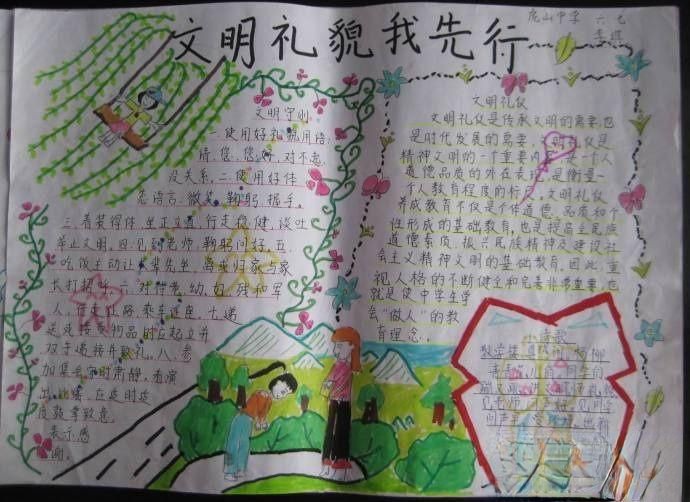 文明礼貌我先行
虎山中学 六七
李
文明守则
一.使用好礼貌用语:
请,您,您好,对不起,
没关系,二.使用好体
态语言:微笑,鞠躬,握手,
三.着装得体,坐正立直,行走稳健,谈吐
举止文明,四.见到老师,鞠躬问好,五.
吃饭主动让长辈先坐,离家归家与家
长打招呼,六.对待老,幼,妇,残和军
人,行走让路,乘车让座,七.递
送或接受物品时应起立并
双手递接并致礼,八.参
加集会时肃静,看演
出,比赛,应适时适
度鼓掌致意,
表示感
谢.
文明礼仪
文明礼仪是传承文明的需要,也
是时代发展的需要,文明礼仪是
精神文明的一个重要内容,是一个人
道德品质的外在表现,是衡量一
个人教育程度的标尺,文明礼仪
养成教育不仅是个体道德,品质和个
性形成的基础教育,也是提高全民族
道德素质,振兴民族精神及建设社
会主义精神文明的基础教育,因此,重
视人格的不断健全和完善非常重要,也
就是使中学生学
会“做人”的教
育理念.
小诗歌